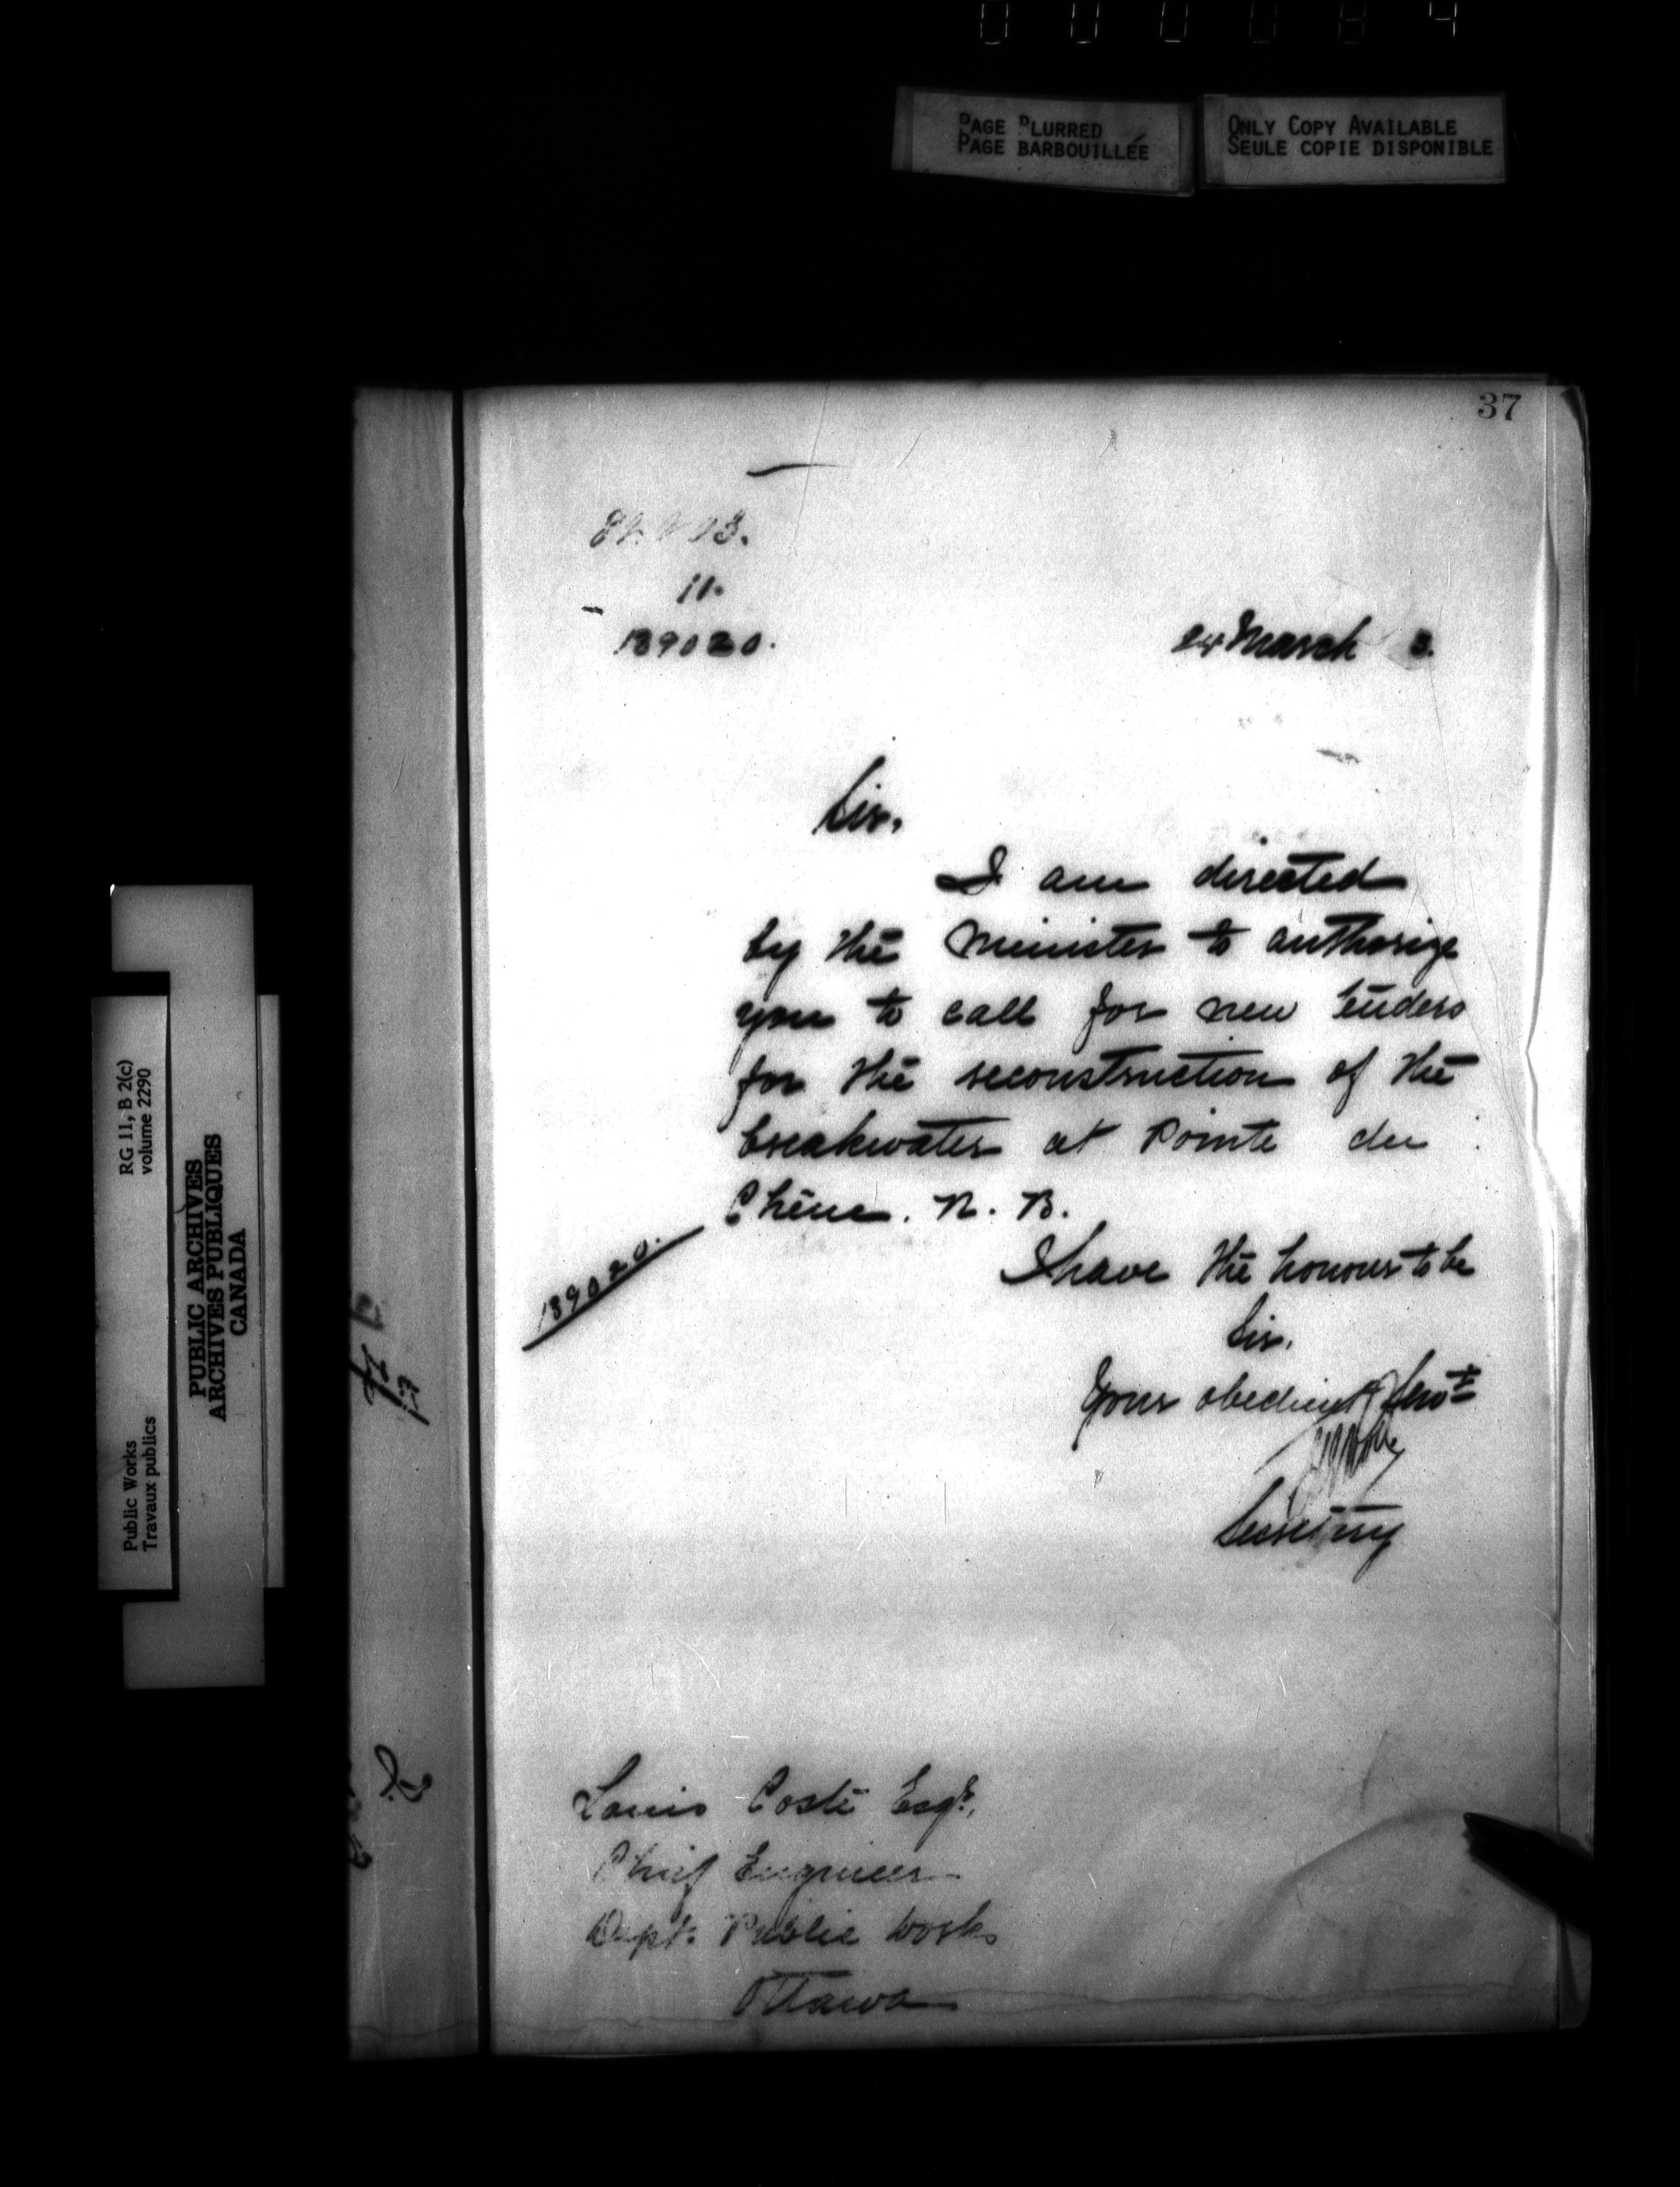 PAGE BLURRED
PAGE BARBOUILLÉE
ONLY COPY AVAILABLE
SEULE COPIE DISPONIBLE
37
11.
139020.
24 March 3.
Sir,
I am directed
by the Minister to authorize
you to call for new tenders
for the reconstruction of the
breakwater at Pointe du
Chêne. N. B.
139020.
I have the honour to be
Sir,
Your obedient Servt
Secretary
Louis Coste Esqr.,
Chief Engineer
Dept. Public Works
Ottawa
RG 11, B 2(c)
volume 2290
Public Works
Travaux publics
PUBLIC ARCHIVES
ARCHIVES PUBLIQUES
CANADA